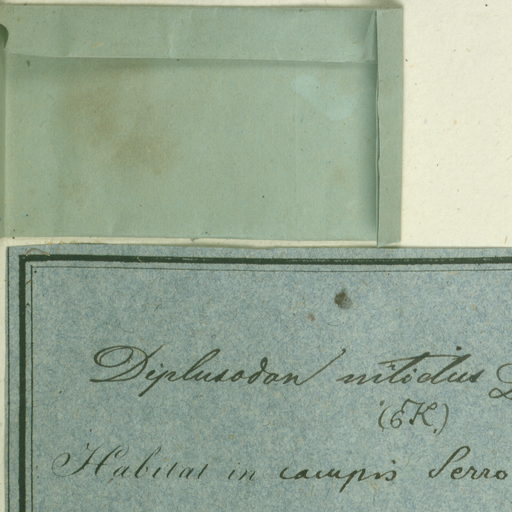 Diplusodon nitidus
Habitat in campis Serro